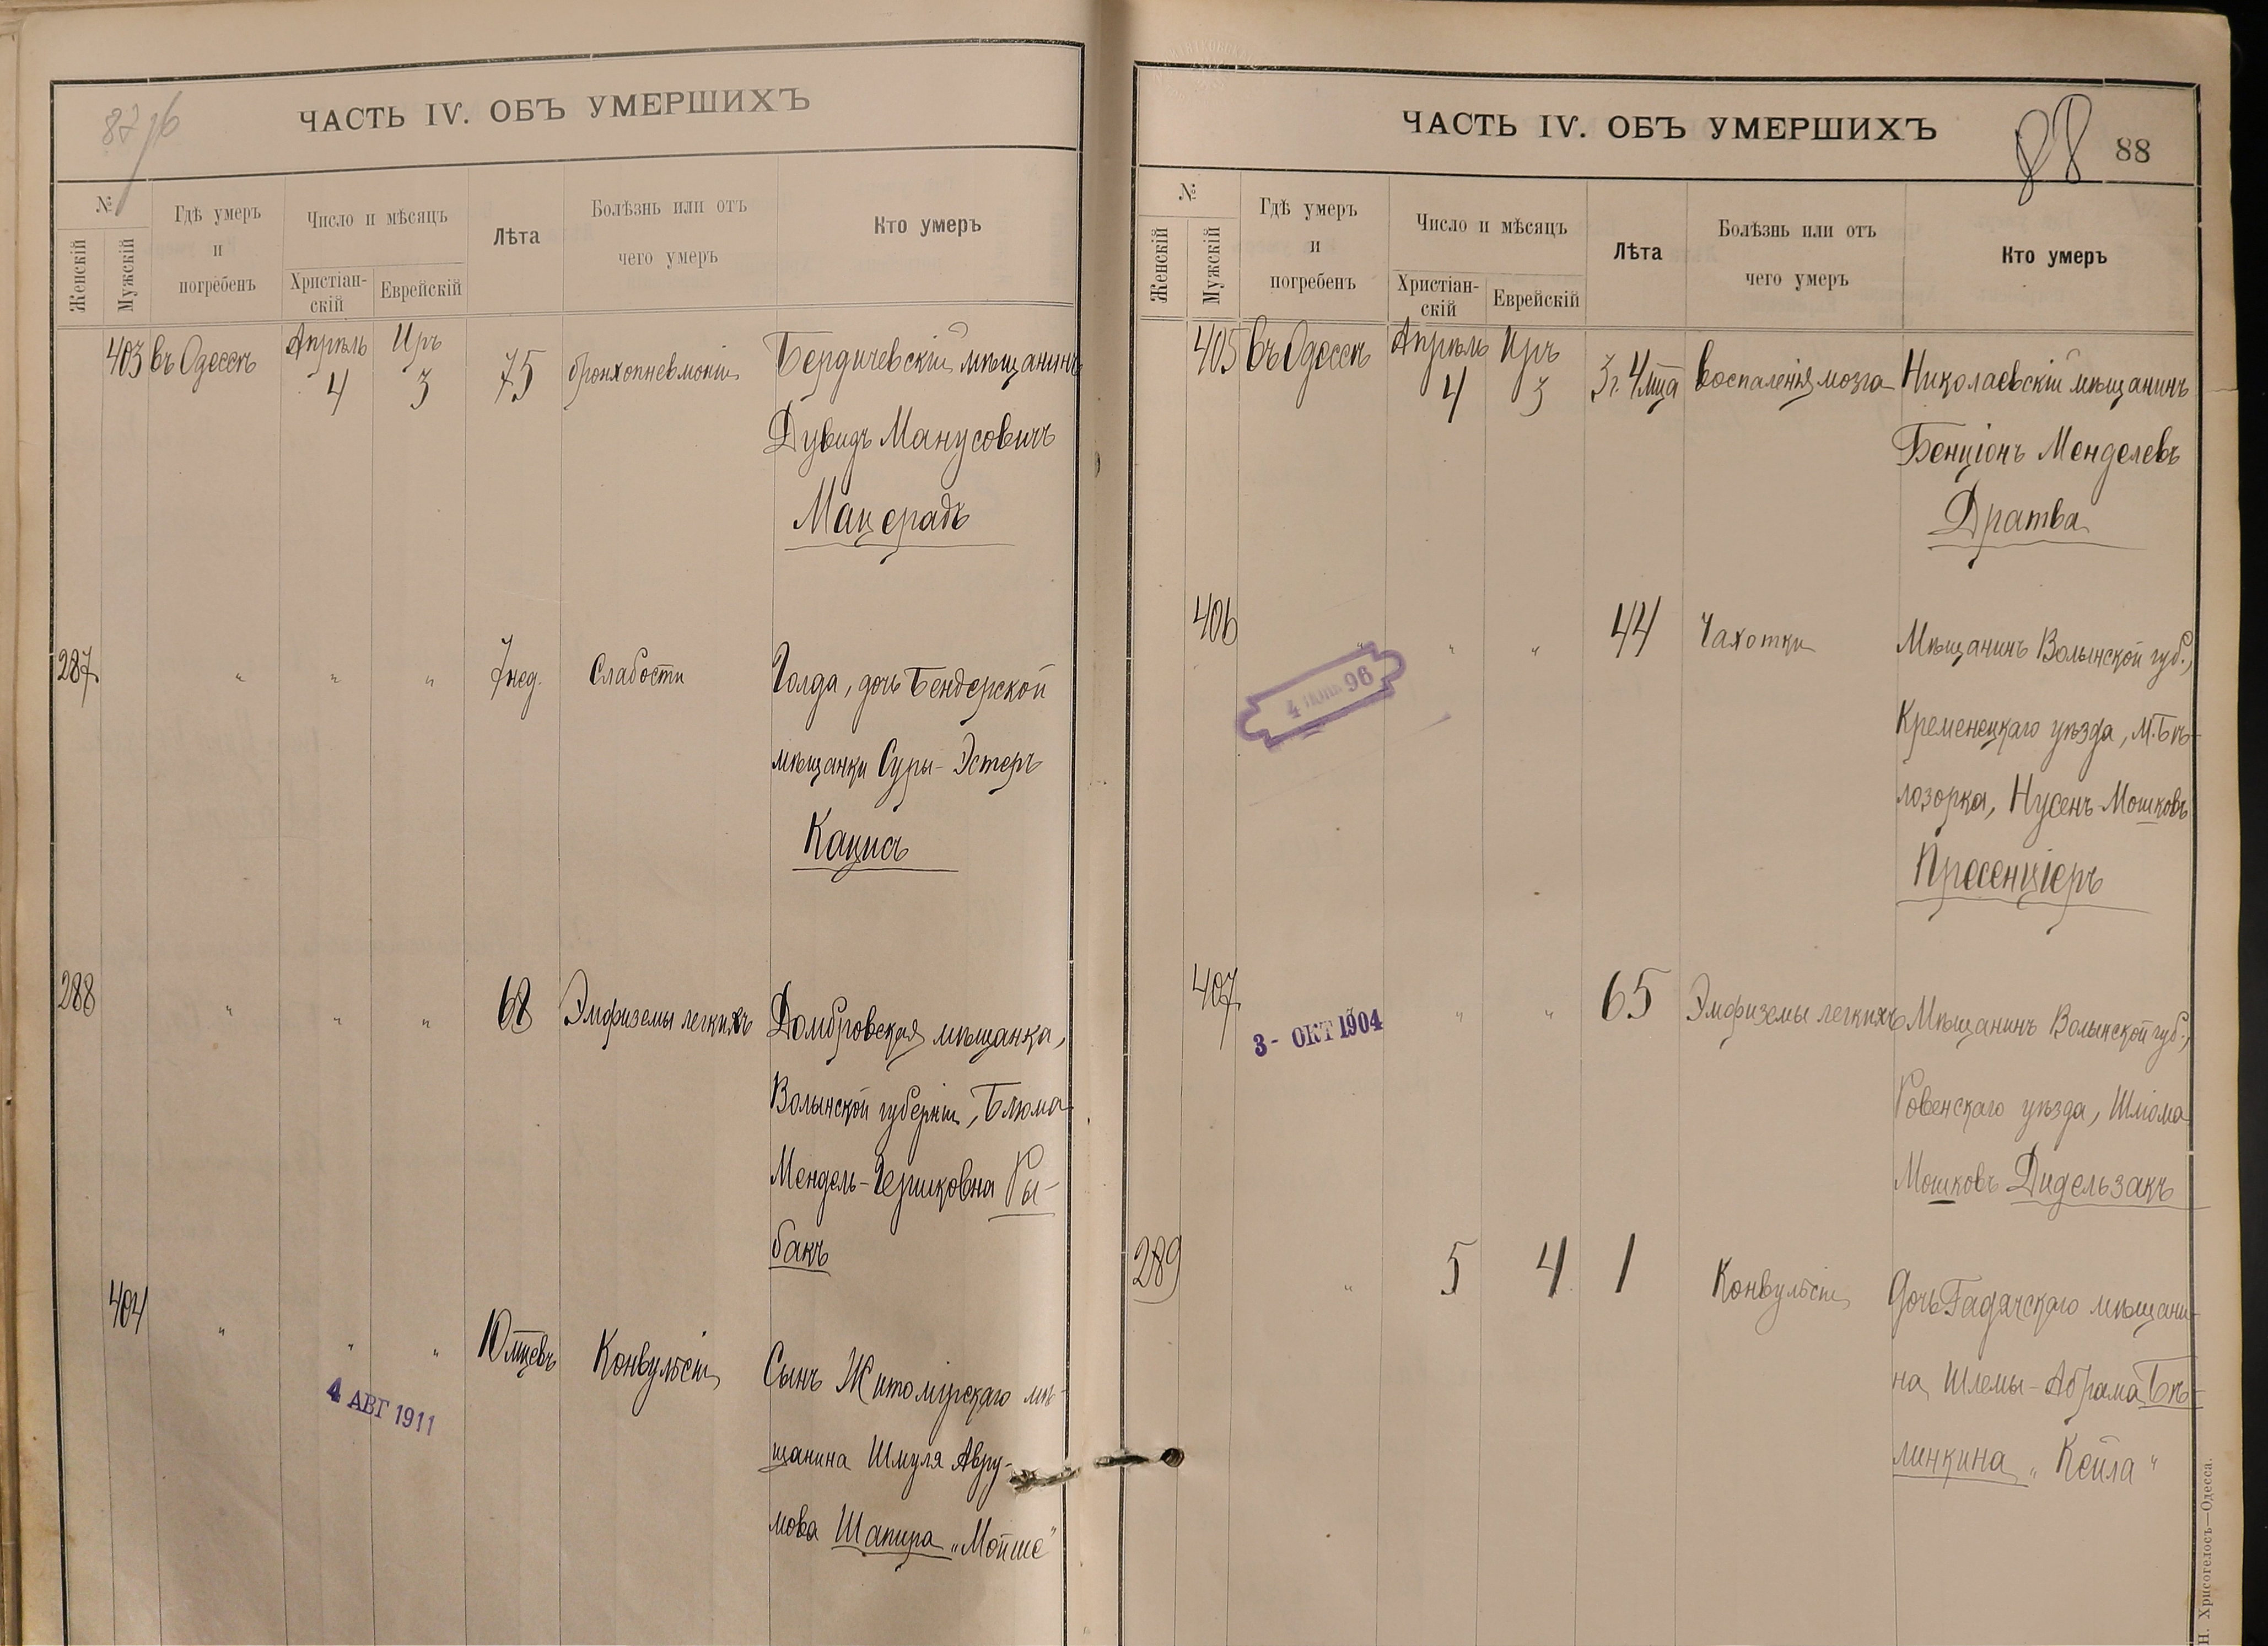 87 об
ЧАСТЬ IV. ОБЪ УМЕРШИХЪ
№
Женскій
Мужскій
Гдѣ умеръ
и
погребенъ
Число и мѣсяцъ
Христіан-
скій
Еврейскій
Лѣта
Болѣзнь или отъ
чего умеръ
Кто умеръ
403 въ Одессѣ Апрѣль 4 Иръ 3 75 бронхопневмоніи Бердичевскій мѣщанинъ
Дувидъ Манусовичъ
Мацерадъ
287 " " " 7 нед. Слабости Голда, дочь Бендерской
мѣщанки Суры-Эстеръ
Кацисъ
288 " " " 68 Эмфиземы легкихъ Домбровская мѣщанка,
Волынской губерніи, Блюма
Мендель-Гершковна Ры-
бакъ
404 " " " 10 мцевъ Конвульсіи Сынъ Житомірскаго мѣ-
щанина Шмуля Авру-
мова Шапира „Мойше"
4 АВГ 1911
ЧАСТЬ IV. ОБЪ УМЕРШИХЪ
88
88
№
Женскій
Мужскій
Гдѣ умеръ
и
погребенъ
Число и мѣсяцъ
Христіан-
скій
Еврейскій
Лѣта
Болѣзнь или отъ
чего умеръ
Кто умеръ
405 въ Одессѣ Апрѣль 4 Иръ 3 3 г. 4 мца воспаленія мозга Николаевскій мѣщанинъ
Бенціонъ Менделевъ
Дратва
406 " " " 44 Чахотки Мѣщанинъ Волынской губ.,
Кременецкаго уѣзда, М. Бѣ-
лозорка, Нусенъ Мошковъ
Пресенціеръ
4 96
407 " " 65 Эмфиземы легкихъ Мѣщанинъ Волынской губ.,
Ровенскаго уѣзда, Шліома
Мошковъ Дидельзакъ
3 - ОКТ 1904
289 " 5 4 1 Конвульсіи Дочь Гадячскаго мѣщани-
на Шлемы-Абрама Бѣ-
линкина „Кейла"
Н. Хрисогелосъ—Одесса.